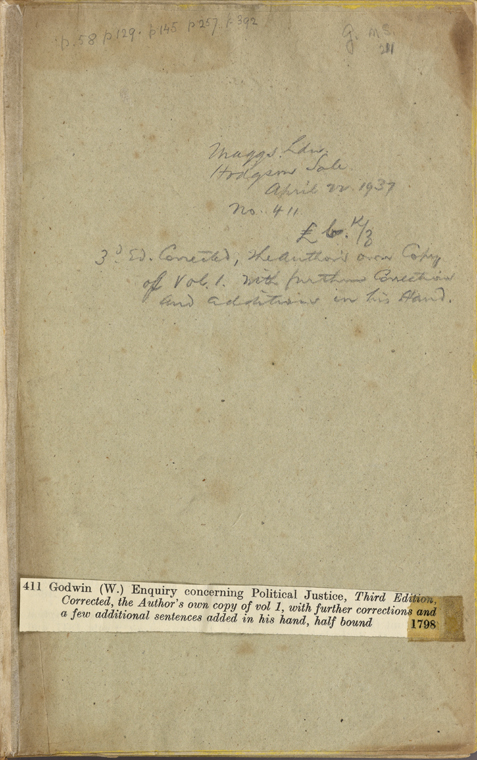 p.58 p129. p145 p257 p392
G. MS.
211
Maggs. Ldn.
Hodgsons Sale.
April 22. 1937
No. 411.
£
3d Ed. Corrected, the author's own Copy
of Vol. 1. With further Corrections
and additions in his Hand.
411 Godwin (W.) Enquiry concerning Political Justice, Third Edition,
Corrected, the Author's own copy of vol 1, with further corrections and
a few additional sentences added in his hand, half bound
1798